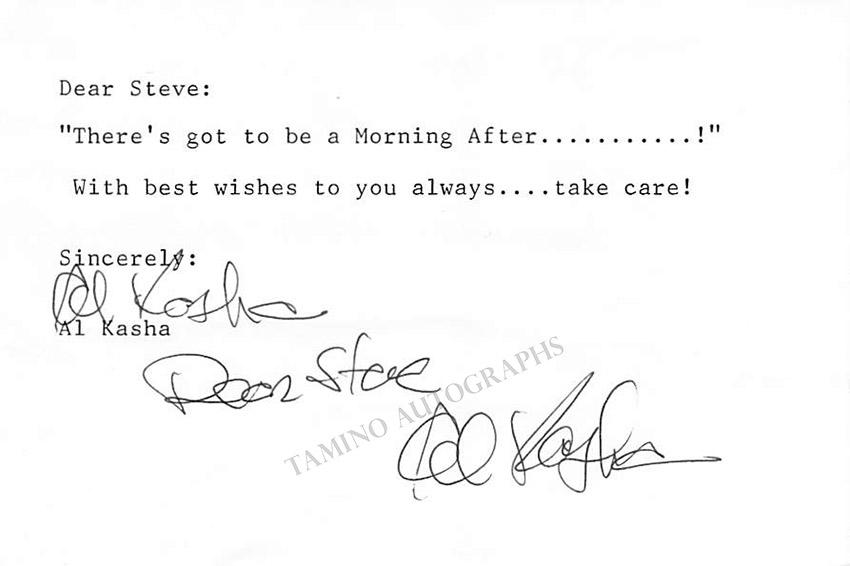 Dear Steve:
"There's got to be a Morning After...........!"
With best wishes to you always....take care!
Sincerely:
Al Kasha
Al Kasha
Dear Steve
TAMINO AUTOGRAPHS
Al Kasha